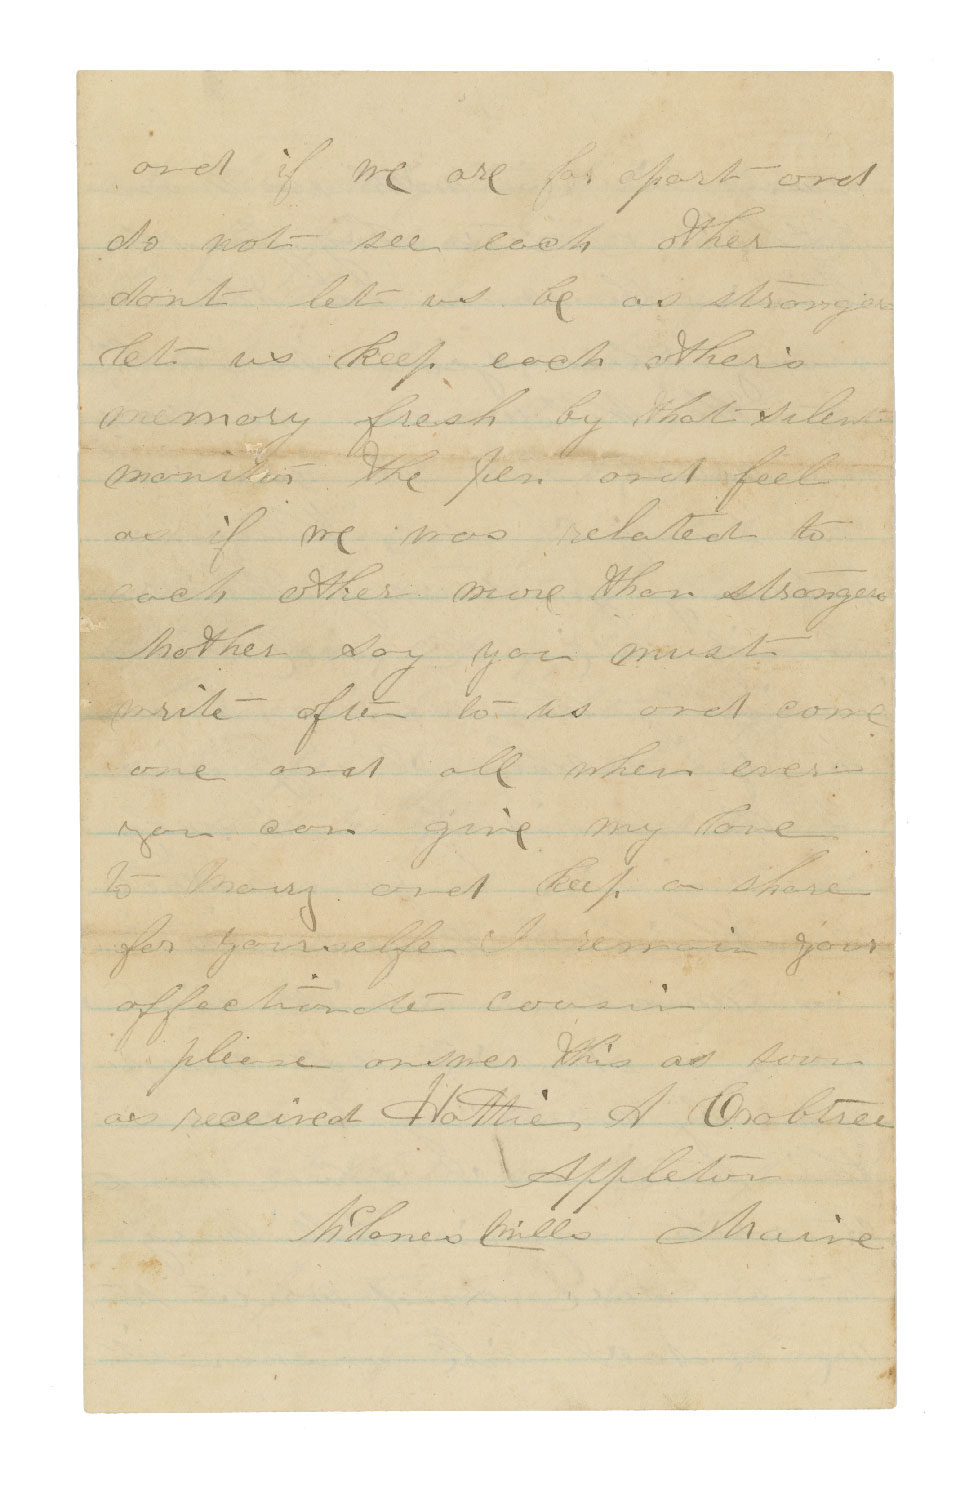 and if we are far apart and
do not see each other
dont let us be as stranger
let us keep each other's
memory fresh by that silent
monitor the Pen and feel
as if we was related to
each other more than strangers
Mother say you must
write often to us and come
one and all when ever
you can give my love
to Mary and keep a share
for yourselfe I remain your
affectionate cousin
please answer this as soon
as received Hattie A Crabtree
Appleton
Mills Maine